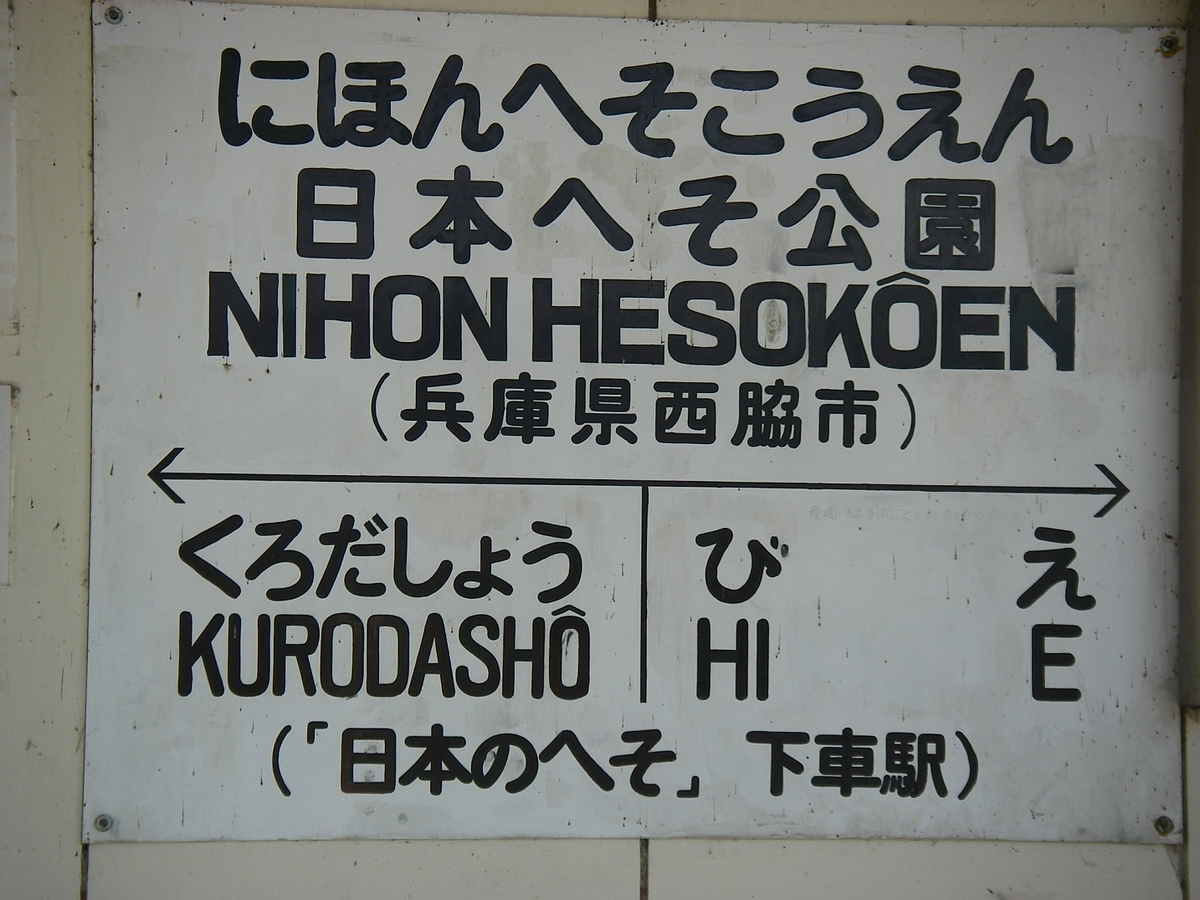 にほんへそこうえん
日本へそ公園
NIHON HESOKÔEN
（兵庫県西脇市）
くろだしょう びえ
KURODASHÔ HI E
（「日本のへそ」 下車駅）